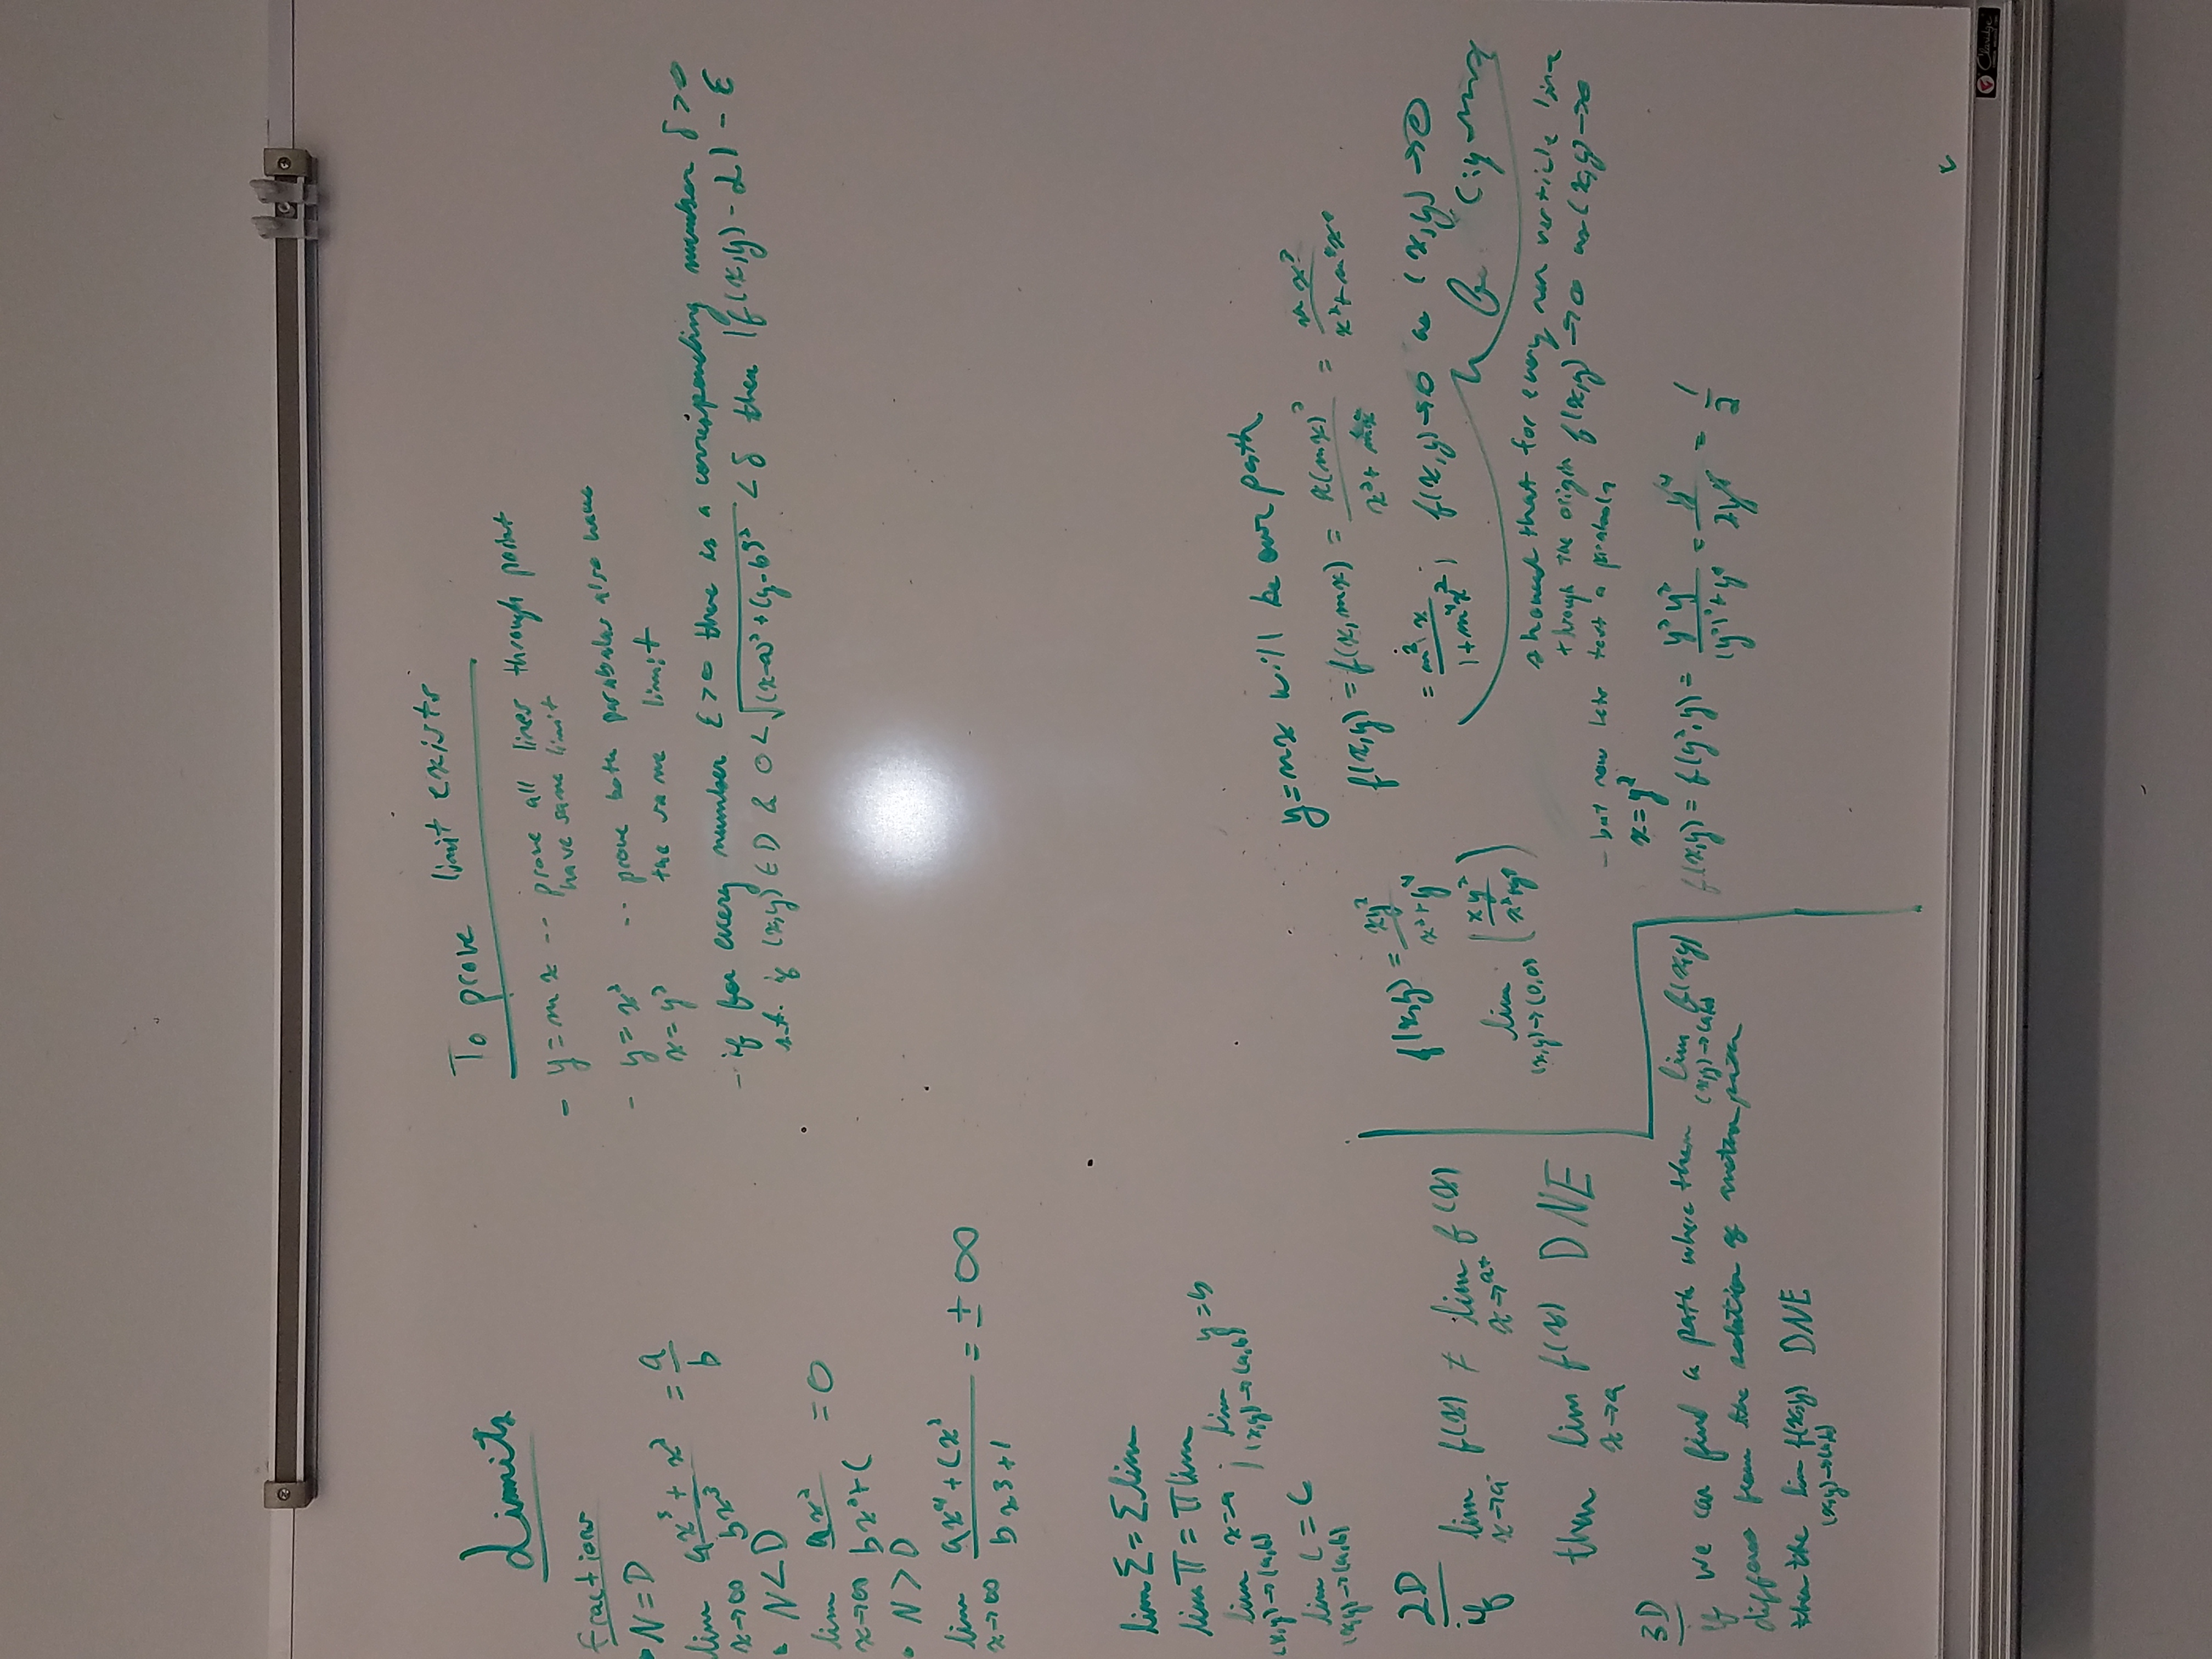 Limits
Fractions
• N=D
lim x→∞ (ax³ + x²)/(bx³) = a/b
• N<D
lim x→∞ (ax²)/(bx³+C) = 0
• N>D
lim x→∞ (ax⁴ + Cx³)/(bx³+1) = ± ∞
lim Σ = Σ lim
lim Π = Π lim
lim (x,y)→(a,b) x=a ; lim (x,y)→(a,b) y=b
lim (x,y)→(a,b) C = C
2D
if lim x→a⁻ f(x) ≠ lim x→a⁺ f(x)
then lim x→a f(x) DNE
3D
if we can find a path where then lim (x,y)→(a,b) f(x,y)
differs from the solution of path
then the lim (x,y)→(a,b) f(x,y) DNE
To prove limit exists
- y = mx -- prove all lines through point
have same limit
- y = x² -- prove both parabalas also have
x = y² the same limit
- if for every number ε>0 there is a corresponding number δ>0
s.t. if (x,y) ∈ D & 0 < √((x-a)² + (y-b)²) < δ then |f(x,y) - L| - ε
f(x,y) = xy²/(x²+y⁴)
lim (x,y)→(0,0) (xy²/(x²+y⁴))
y=mx will be our path
f(x,y) = f(x,mx) = x(mx)²/(x² + m⁴x⁴) = m x³/(x²+m⁴x⁴)
= m²x/(1+m⁴x²) ; f(x,y)→0 as (x,y)→0
showed that for every non verticle line
through the origin f(x,y) →0 as (x,y)→0
- but now lets test a parabola
x = y²
f(x,y) = f(y²,y) = y² y²/((y²)²+y⁴) = y⁴/2y⁴ = 1/2
Claridge